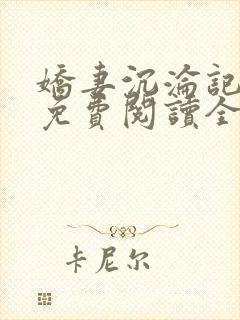 嬌妻沉淪記
免費閱讀全
卡尼尔